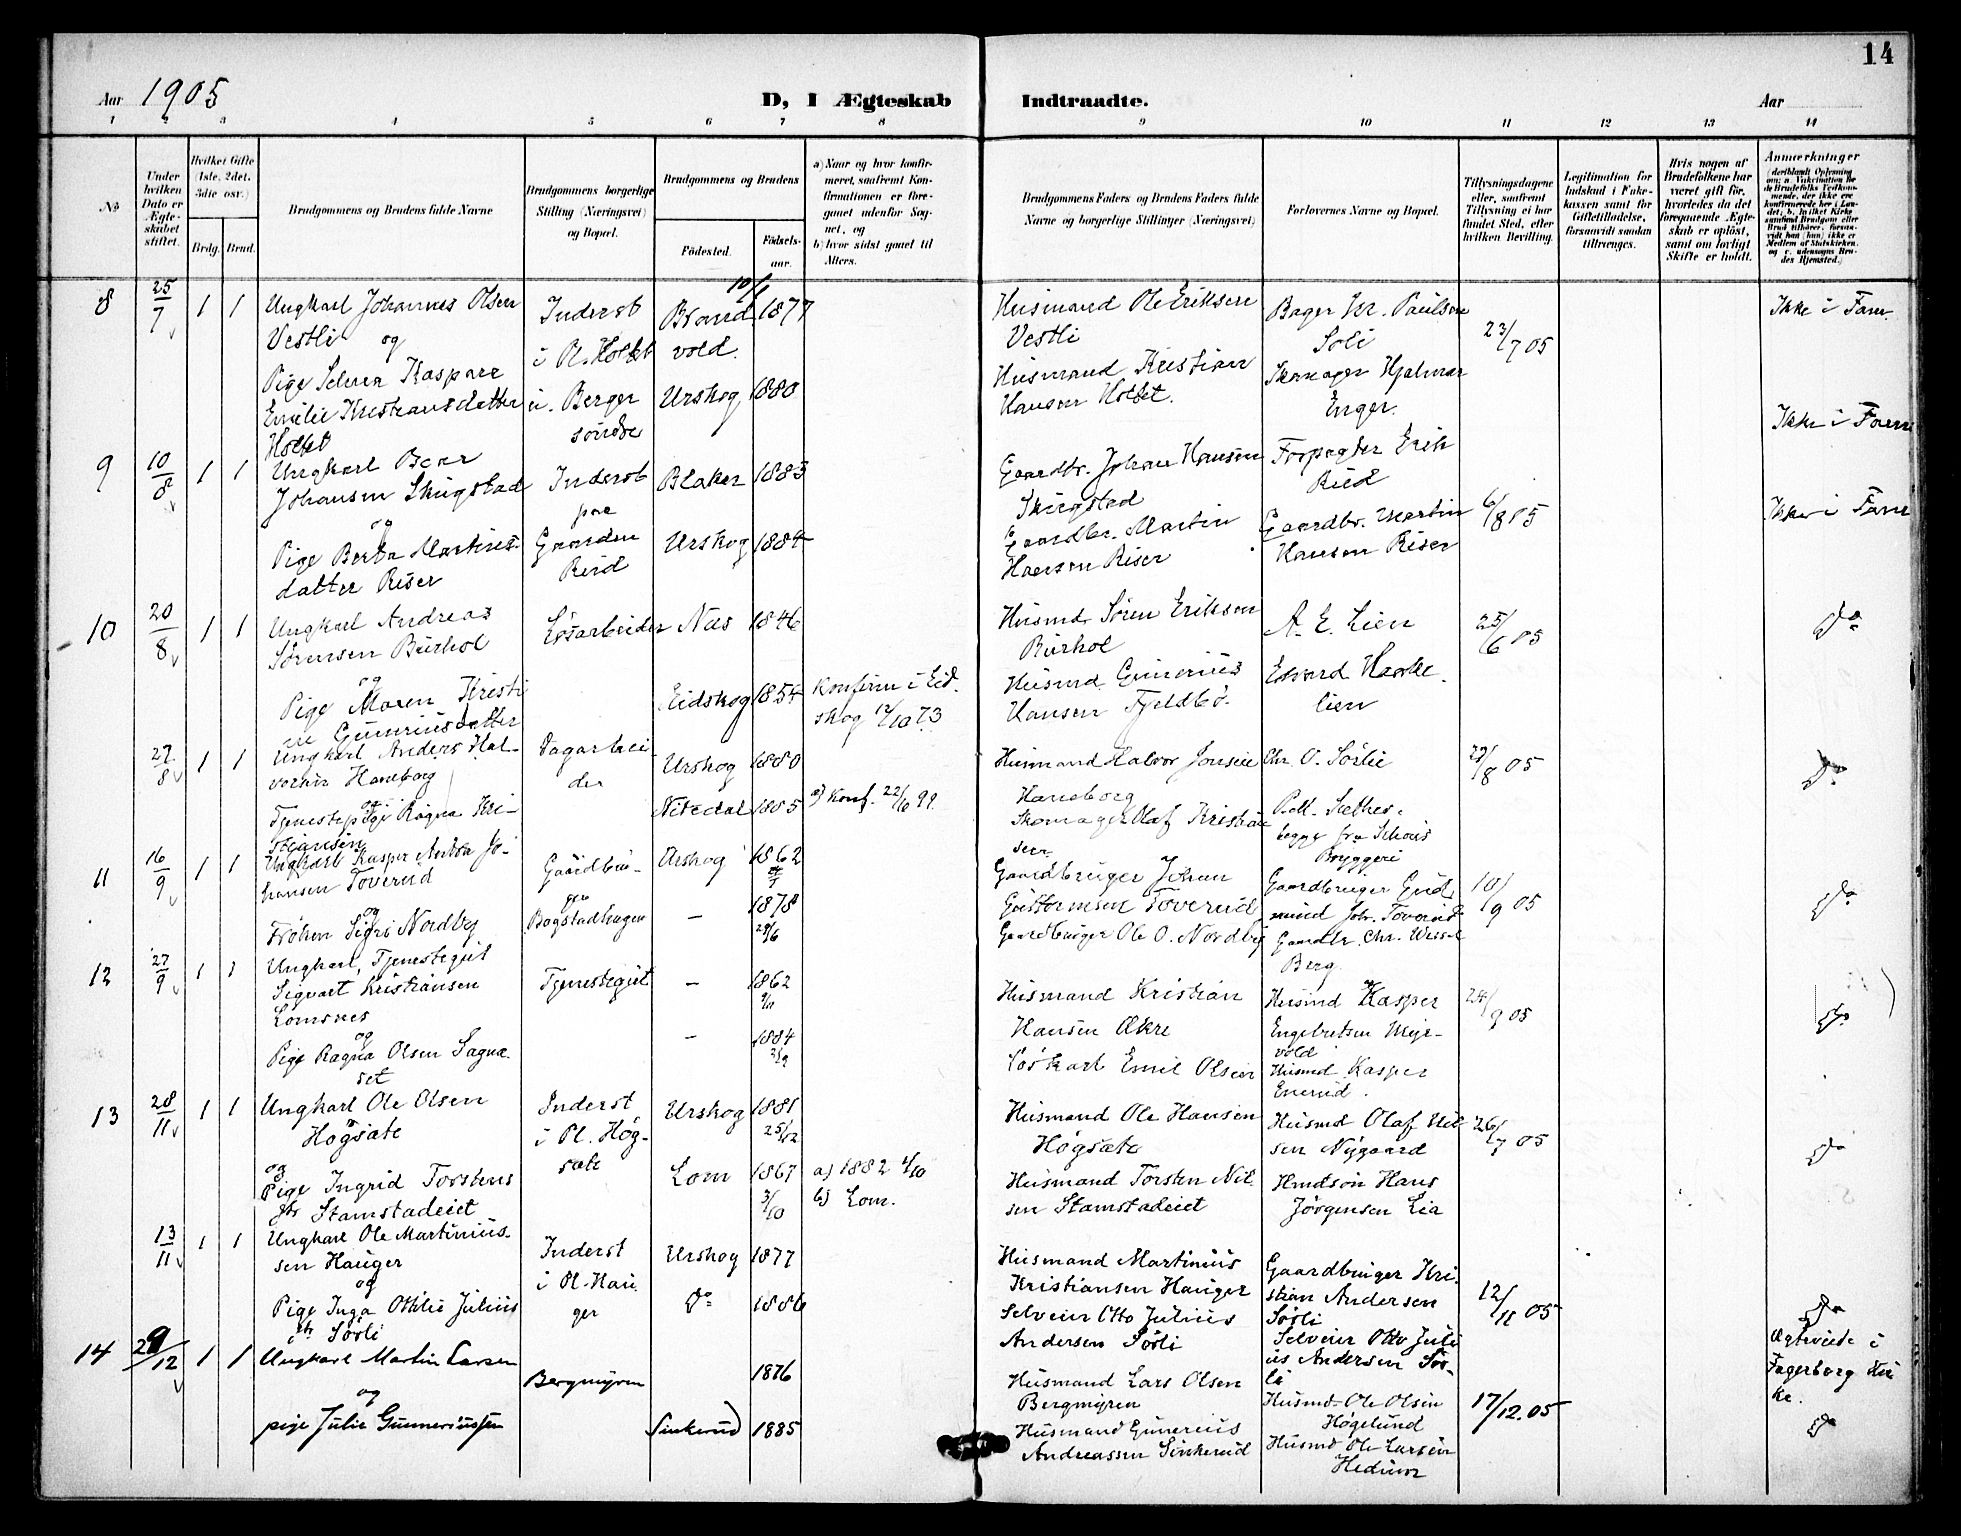 14
Aar 1905
D, I Ægteskab Indtraadte.
Aar
1 2 3 4 5 6 7 8 9 10 11 12 13 14
No
Under hvilken Dato er Ægteskabet stiftet.
Hvilket Gifte (1ste, 2det, 3die osv.)
Brdg. Brud.
Brudgommens og Brudens fulde Navne
Brudgommens borgerlige Stilling (Næringsvei) og Bopæl.
Brudgommens og Brudens
Fødested.
Fødselsaar.
a) Naar og hvor konfirmeret, saafremt Konfirmationen er foregaaet udenfor Sognet, og
b) hvor sidst gaaet til Alters.
Brudgommens Faders og Brudens Faders fulde Navne og borgerlige Stillinger (Næringsvei)
Forlovernes Navne og Bopæl.
Tillysningsdagene eller, saafremt Tillysning ei har fundet Sted, efter hvilken Bevilling.
Legitimation for Indskud i Enkekassen samt for Giftetilladelse, forsaavidt saadan tiltrænges.
Hvis nogen af Brudefolkene har været gift før, hvorledes da det foregaaende Ægteskab er opløst, samt om lovligt Skifte er holdt.
Anmærkninger
8 25/7 1 1 Ungkarl Johannes Olsen
Vestli og
Pige Kaspare
Emilie Kristiansdatter
Holtet
Inderst
i Pl. Holtet
u. Berger
søndre
Brand
vold.
10/1 1877
Urskog 1880
Husmand Ole Eriksen
Vestli
Husmand Kristian
Hansen Holtet.
Bager Kr. Paulsen
Soli
Skomager Hjalmar
Enger.
23/7 05
Ikke i Fam.
Ikke i Fam
9 10/8 1 1 Ungkarl
Johansen Skugstad
og
Pige Berta Martins-
datter Riser
Inderst
paa
Gaarden
Rud
Blaker 1883
Urskog 1884
Gaardbr. Johan Hansen
Skugstad
Gaardbr. Martin
Hansen Riser
Forpagter Erik
Rud
Gaardbr. Martin
Hansen Riser
6/8 05
Ikke i Fam
10 20/8 1 1 Ungkarl Andreas
Sørensen Burhol
og
Pige Maren Kristi
ne Gunriusdatter
Løsarbeider
Næs 1846
Eidskog 1854
Konfirm i Eid-
skog 12/10 73
Husmd. Søren Eriksen
Burhol
Husmd. Gunerius
Hansen Fjeldbø.
A. E. Lien
Edvard
lien
25/6 05
Do
27/8 1 1 Ungkarl Anders Hal-
vorsen Haneborg
og
Tjenestepige Ragna Kri-
stiansen
Dagarbei
der
Urskog 1880
Nitedal 1885
a) Konf. 22/10 99
Husmand Halvor Jonsen
Haneborg
Skomager Olaf Kristian
sen
Chr. O. Sørlie
Sæther,
begge fra Schous
Bryggeri
29/8 05
Do
11 16/9 1 1 Ungkarl Kasper Anton Jo-
hansen Toverud
og
Frøken Sigri Nordby
Gaardbru-
ger
Bogstadhagen
Urskog 1862
– 1878
29/6
Gaardbruger Johan
Guttormsen Toverud
Gaardbruger Ole O. Nordby
Gaardbruger Gud
mund Joh. Toverud
Gaardbr. Chr. Wessel
Berg
10/9 05
Do
12 27/9 1 1 Ungkarl, Tjenestegut
Sigvart Kristiansen
Lomsnes
og
Pige Ragna Olsen Sagna
set
Tjenestegut
– 1862
– 1884
Husmand Kristian
Hansen Økre
Løskarl Emil Olsen
Husmd Kasper
Engebretsen Meje-
vold
Husmd. Kasper
Enerud.
24/9 05
Do
13 28/11 1 1 Ungkarl Ole Olsen
Høgsæte
og
Pige Ingrid Torstens
dtr Stamstadeiet
Inderst
i Pl. Høg-
sæte
Urskog 1881
25/12
Lom 1867
3/10
a) 1882 1/10
b) Lom.
Husmand Ole Hansen
Høgsæte
Husmand Torsten Nil
sen Stamstadeiet
Husmd Olaf Nil
sen Nygaard
Hans
Jørgensen Lia
26/7 05
Do
13/11 1 1 Ungkarl Ole Martinius-
sen Hauger
og
Pige Inga Othilie Julius
dtr Sørli
Inderst
i Pl. Hau
ger
Urskog 1877
Do 1886
Husmand Martinius
Kristiansen Hauger
Selveier Otto Julius
Andersen Sørli
Gaardbruger Kri
stian Andersen
Sørli
Selveier Otto Juli
us Andersen Sør-
li
12/11 05
Do
14 29/12 1 1 Ungkarl Martin Larsen
og
pige Julie Gunneriussen
Bergmyren
1876
Sinkerud 1885
Husmand Lars Olsen
Bergmyren
Husmand Gunerius
Andreassen Sinkerud
Husmd Ole Olsen
Høgelund
Husmd Ole Larsen
Hedum
17/12.05
Ægteviede i
Fagerborg Kir
ke.
Do